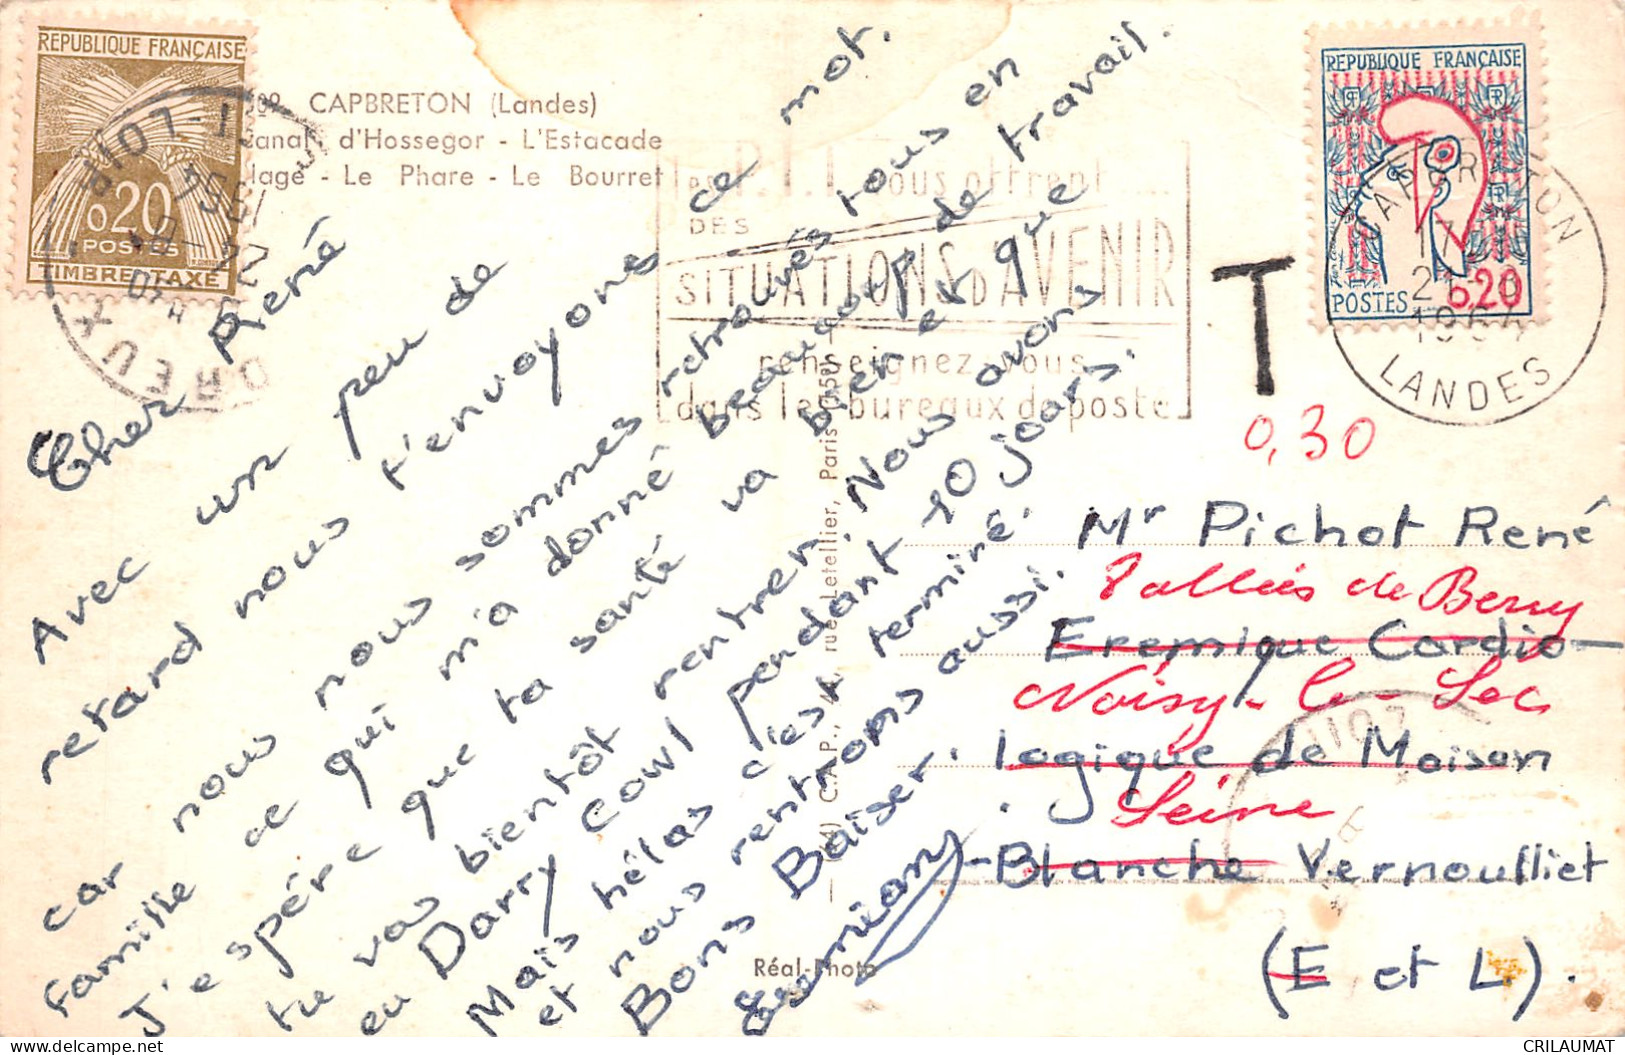 REPUBLIQUE FRANÇAISE
0,20
POSTES
TIMBRE TAXE
CAPBRETON (Landes)
Canal d'Hossegor - L'Estacade
Plage - Le Phare - Le Bourret
DREUX
EURE-ET-LOIR
vous offrent
DES
SITUATIONS D'AVENIR
renseignez vous
dans les bureaux de poste
REPUBLIQUE FRANÇAISE
POSTES 0,20
CAPBRETON
17
1964
LANDES
T
0,30
Cher René
Avec un peu de
retard nous t'envoyons ce mot.
car nous nous sommes retrouvés tous en
famille ce qui m'a donné beaucoup de travail.
J'espère que ta santé va bien et que
tu vas bientôt rentrer. Nous avons
eu Darry Cowl pendant 10 jours.
Mais hélas c'est terminé.
et nous rentrons aussi.
Bons Baiser.
Mr Pichot René
Vallées de Berry
Eremique Cardio-
Noisy-le-Sec
logique de Maison
Seine
-Blanche Vernoulliet
(E et L).
rue Letellier, Paris
Réal-Photo
CRILAUMAT